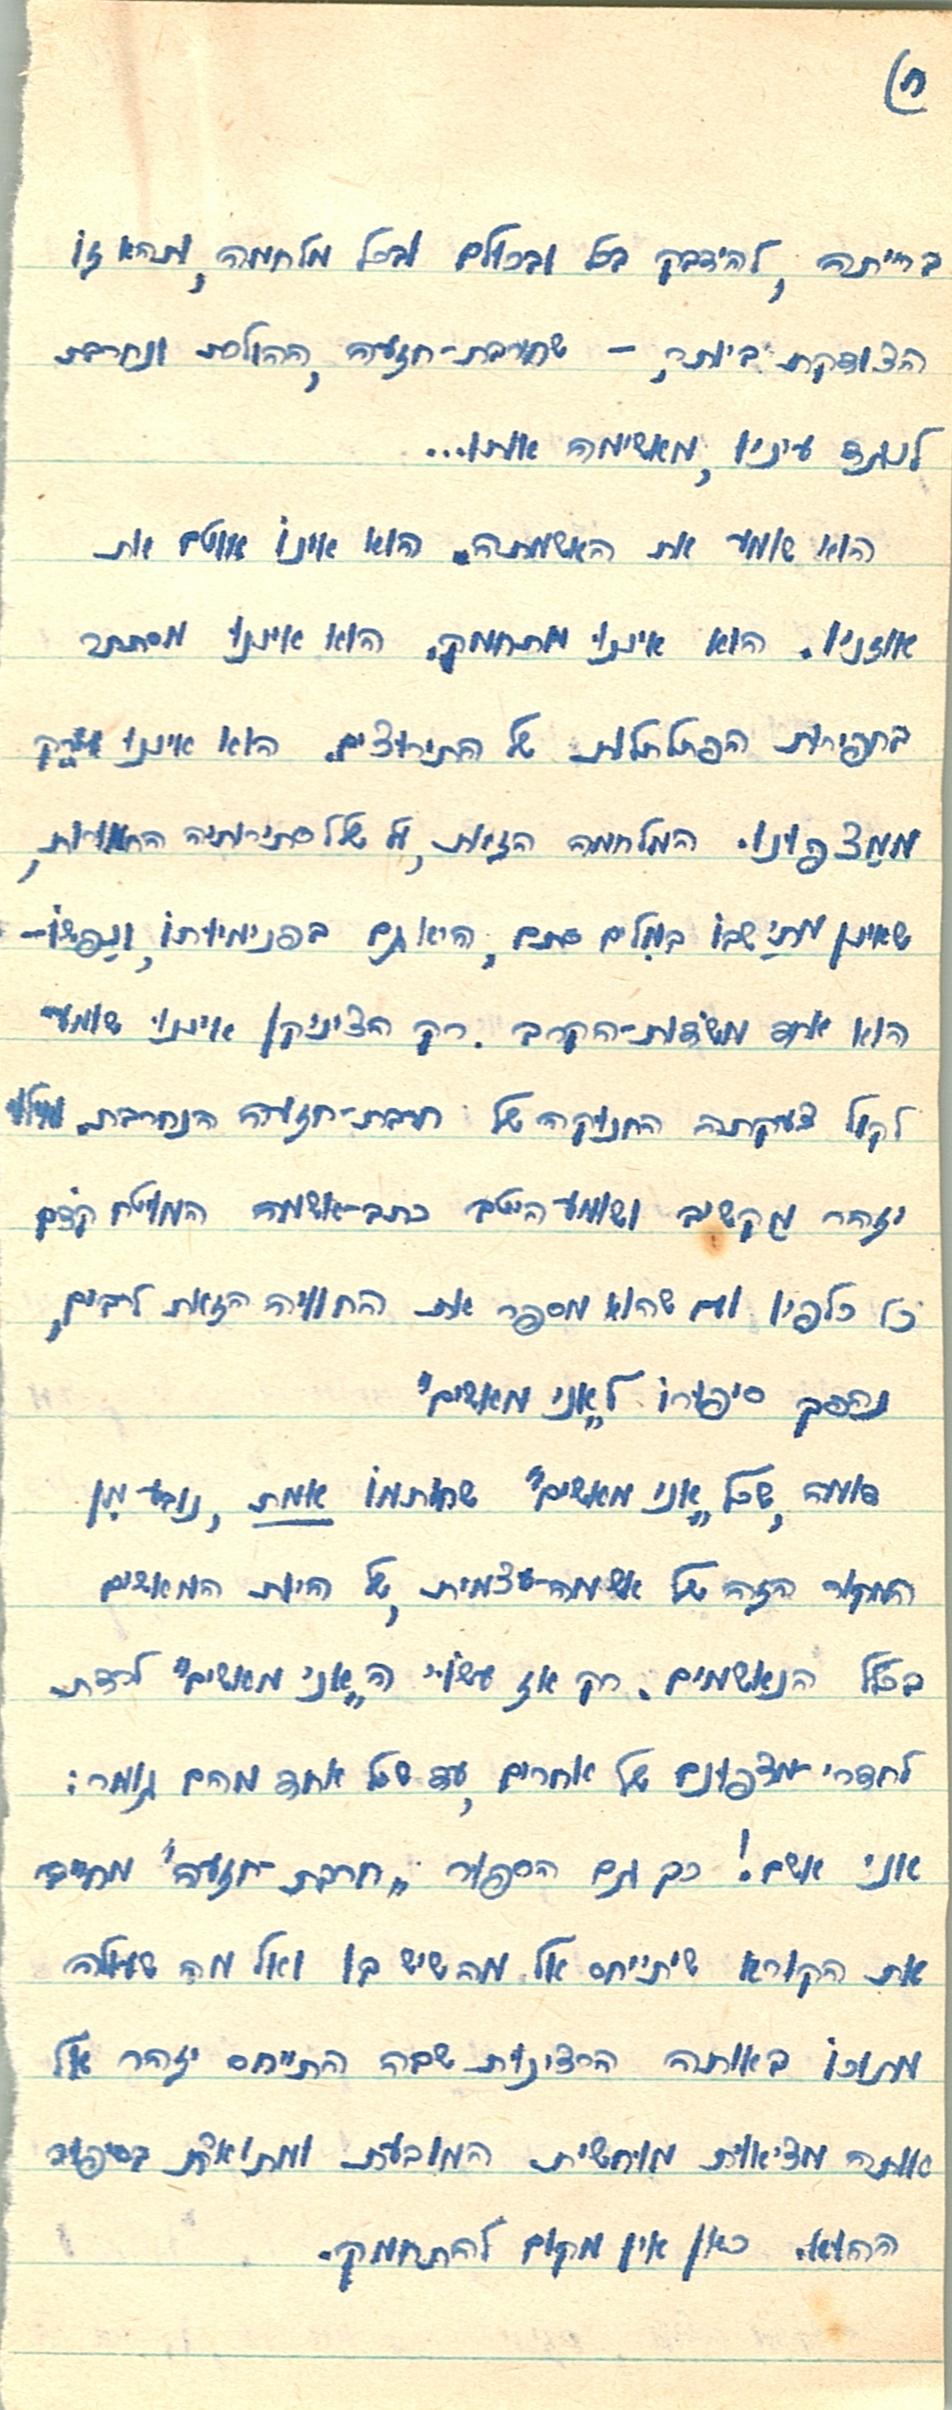 ח)
בחייתה, להידבק בכל ובכולם ובכל מלחמה, ותהא זו
הצודקת ביותר, – שחרבת-חזעה, ההולכת ונחרבת
לנגד עיניו, מאשימה אותו...
הוא שומע את האשמתה. הוא אינו אוטם את
אוזניו. הוא איננו מתחמק. הוא איננו מסתתר
בחפירות הפתלתלות של התירוצים. הוא איננו עורק
ממצפונו. המלחמה הזאת, על שלל סתירותיה החמורות,
שאינן מתישבות במלים סתם, היא גם בפנימיותו, ונפשו-
הוא אחד משדות-הקרב. רק הציניקן איננו שומע
לקול צעקתה החנוקה של חרבת-חזעה הנחרבת.
יזהר מקשיב ושומע היטב כתב-אשמה המוטח קודם
כל כלפיו ועם שהוא מספר את החוויה הזאת לרבים,
נהפך סיפורו ל„אני מאשים"
דומה, שכל „אני מאשים" שחותמו אמת, נובע מן
המקור הזה של אשמה-עצמית, של היות המאשים
בכלל הנאשמים. רק אז עשוי ה„אני מאשים" לרדת
לחדרי-מצפונם של אחרים, עד שכל אחד מהם גומר:
אני אשם! כך גם הספור „חרבת-חזעה" מחייב
את הקורא שיתייחס אל מה שיש בו ואל מה שעולה
מתוכו באותה הרצינות שבה התייחס יזהר אל
אותה מציאות מוחשית המובעת ומתוארת בסיפור
ההוא. כאן אין מקום להתחמק.